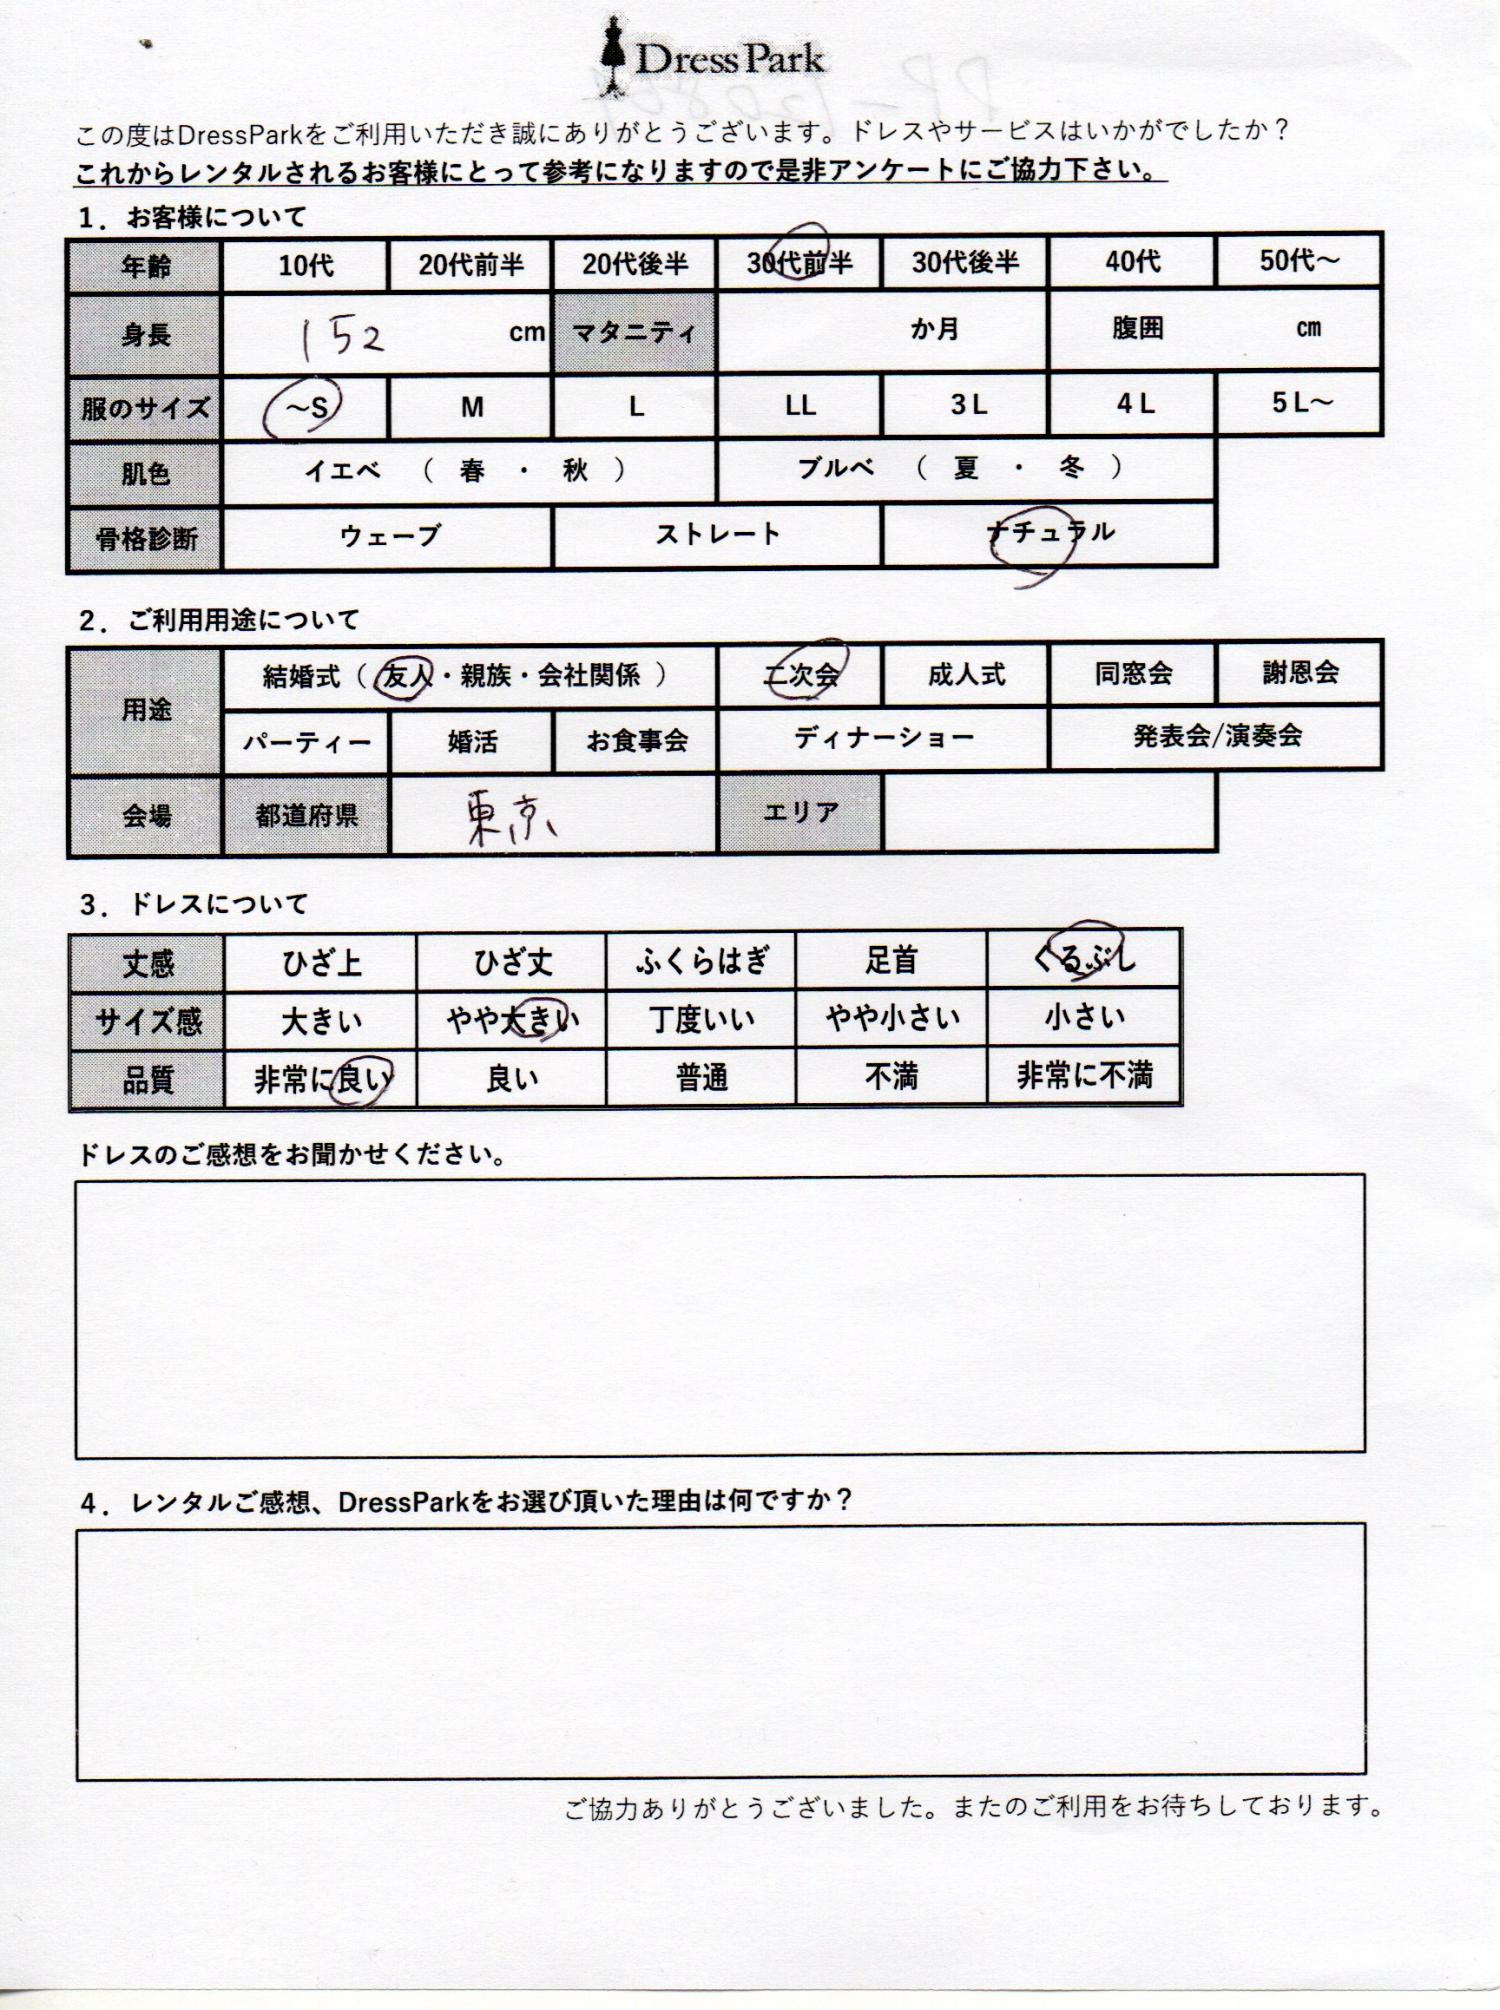 Dress Park
この度はDressParkをご利用いただき誠にありがとうございます。ドレスやサービスはいかがでしたか？
これからレンタルされるお客様にとって参考になりますので是非アンケートにご協力下さい。
1．お客様について
年齢 10代 20代前半 20代後半 30代前半 30代後半 40代 50代～
身長 152 cm マタニティ か月 腹囲 ㎝
服のサイズ ～S M L LL 3L 4L 5L～
肌色 イエベ （ 春 ・ 秋 ） ブルベ （ 夏 ・ 冬 ）
骨格診断 ウェーブ ストレート ナチュラル
2．ご利用用途について
用途 結婚式（ 友人・親族・会社関係 ） 二次会 成人式 同窓会 謝恩会
パーティー 婚活 お食事会 ディナーショー 発表会/演奏会
会場 都道府県 東京 エリア
3．ドレスについて
丈感 ひざ上 ひざ丈 ふくらはぎ 足首 くるぶし
サイズ感 大きい やや大きい 丁度いい やや小さい 小さい
品質 非常に良い 良い 普通 不満 非常に不満
ドレスのご感想をお聞かせください。
4．レンタルご感想、DressParkをお選び頂いた理由は何ですか？
ご協力ありがとうございました。またのご利用をお待ちしております。